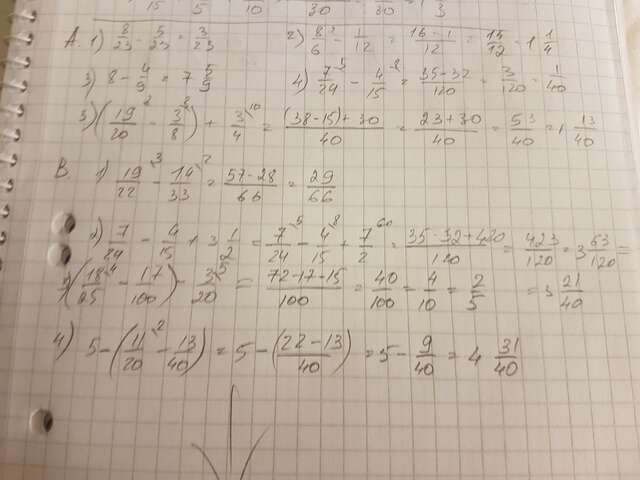 15 5 10 30 30 1 3
A. 1) 8/23 - 5/23 = 3/23 2) 8/6 ² - 1/12 = 16-1/12 = 15/12 = 1 1/4
3) 8 - 4/9 = 7 5/9 4) 7/24 ⁵ - 4/15 ⁸ = 35-32/120 = 3/120 = 1/40
5) (19/20 ² - 3/8 ⁵) + 3/4 ¹⁰ = (38-15)+30/40 = 23+30/40 = 53/40 = 1 13/40
B. 1) 19/22 ³ - 14/33 ² = 57-28/66 = 29/66
2) 7/24 - 4/15 + 3 1/2 = 7/24 ⁵ - 4/15 ⁸ + 7/2 ⁶⁰ = 35-32+420/120 = 423/120 = 3 63/120 =
3) (18/25 ⁴ - 17/100) - 3/20 ⁵ = 72-17-15/100 = 40/100 = 4/10 = 2/5 = 3 21/40
4) 5 - (11/20 ² - 13/40) = 5 - (22-13/40) = 5 - 9/40 = 4 31/40